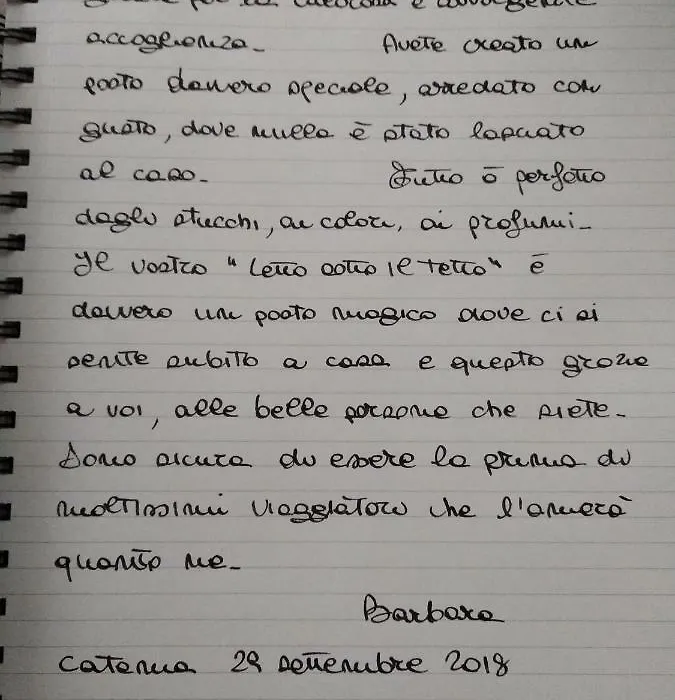 accoglienza. Avete creato un
posto davvero speciale, arredato con
gusto, dove nulla è stato lasciato
al caso. Tutto è perfetto
dagli stucchi, ai colori, ai profumi.
Il vostro "Letto sotto il tetto" è
davvero un posto magico dove ci si
sente subito a casa e questo grazie
a voi, alle belle persone che siete.
Sono sicura di essere la prima di
moltissimi viaggiatori che l'amerà
quanto me.
Barbara
Catania 29 settembre 2018